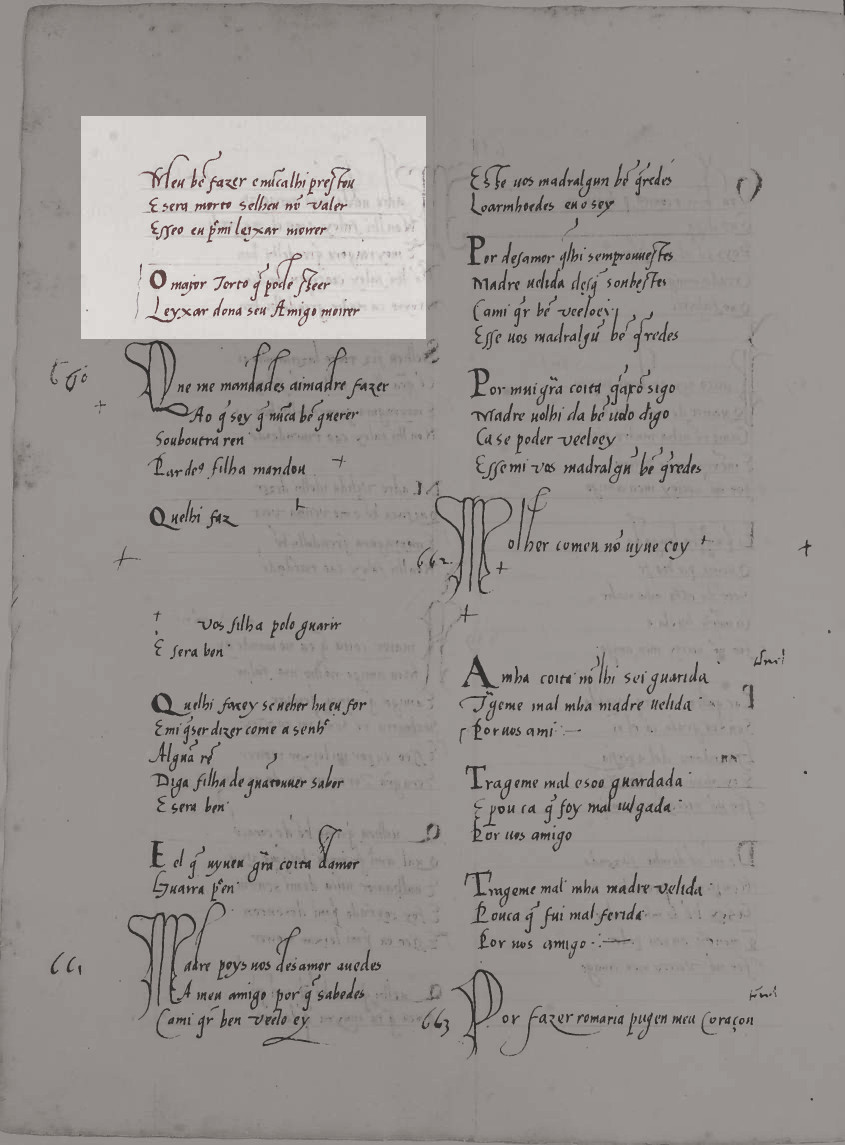 Meu bẽ fazer enũcalhi prestou
E sera morto selheu nõ valer
Esseo eu p̃mi leyxar morrer
O mayor Torto q̃ pode sseer
Leyxar dona seu Amigo moirer
660
Que me mandades aimadre fazer
Ao q̃ sey q̃ nũca bẽ querer
Souboutra ren
Pardeꝰ filha mandou
Quelhi faz
vos filha polo guarir
E sera ben
Quelhi farey seueher hu eu for
Emi q̃ser dizer come a senhr̃
Algũa rẽ
Diga filha de quãtouuer sabor
E sera ben
E el q̃ uyueu grã coita damor
Guarra pr̃en
661
Madre poys uos desamor auedes
A meu amigo por q̃ sabedes
Cami gr̃ ben veelo ey
Esse uos madralgun bẽ q̃redes
Loarmhoedes euo sey
Por desamor q̃lhi sempre ouuestes
Madre uelida desq̃ soubestes
Cami gr̃ bẽ veeloey
Esse uos madralgũ bẽ q̃redes
Por mui grã coita q̃arõ sigo
Madre uolhi da bẽ uolo digo
Ca se poder veeloey
Essemi vos madralgũ bẽ q̃redes
662
Molher comeu nõ uyue coy
Amha coita nõ lhi sei guarida
Trageme mal mha madre uelida
Por uos ami
Trageme mal esoo guardada
E pou ca q̃ foy mal iulgada
Por uos amigo
Trageme mal mha madre velida
Pouca q̃ fui mal ferida
Por uos amigo
663
Por fazer romaria pugen meu coraçon